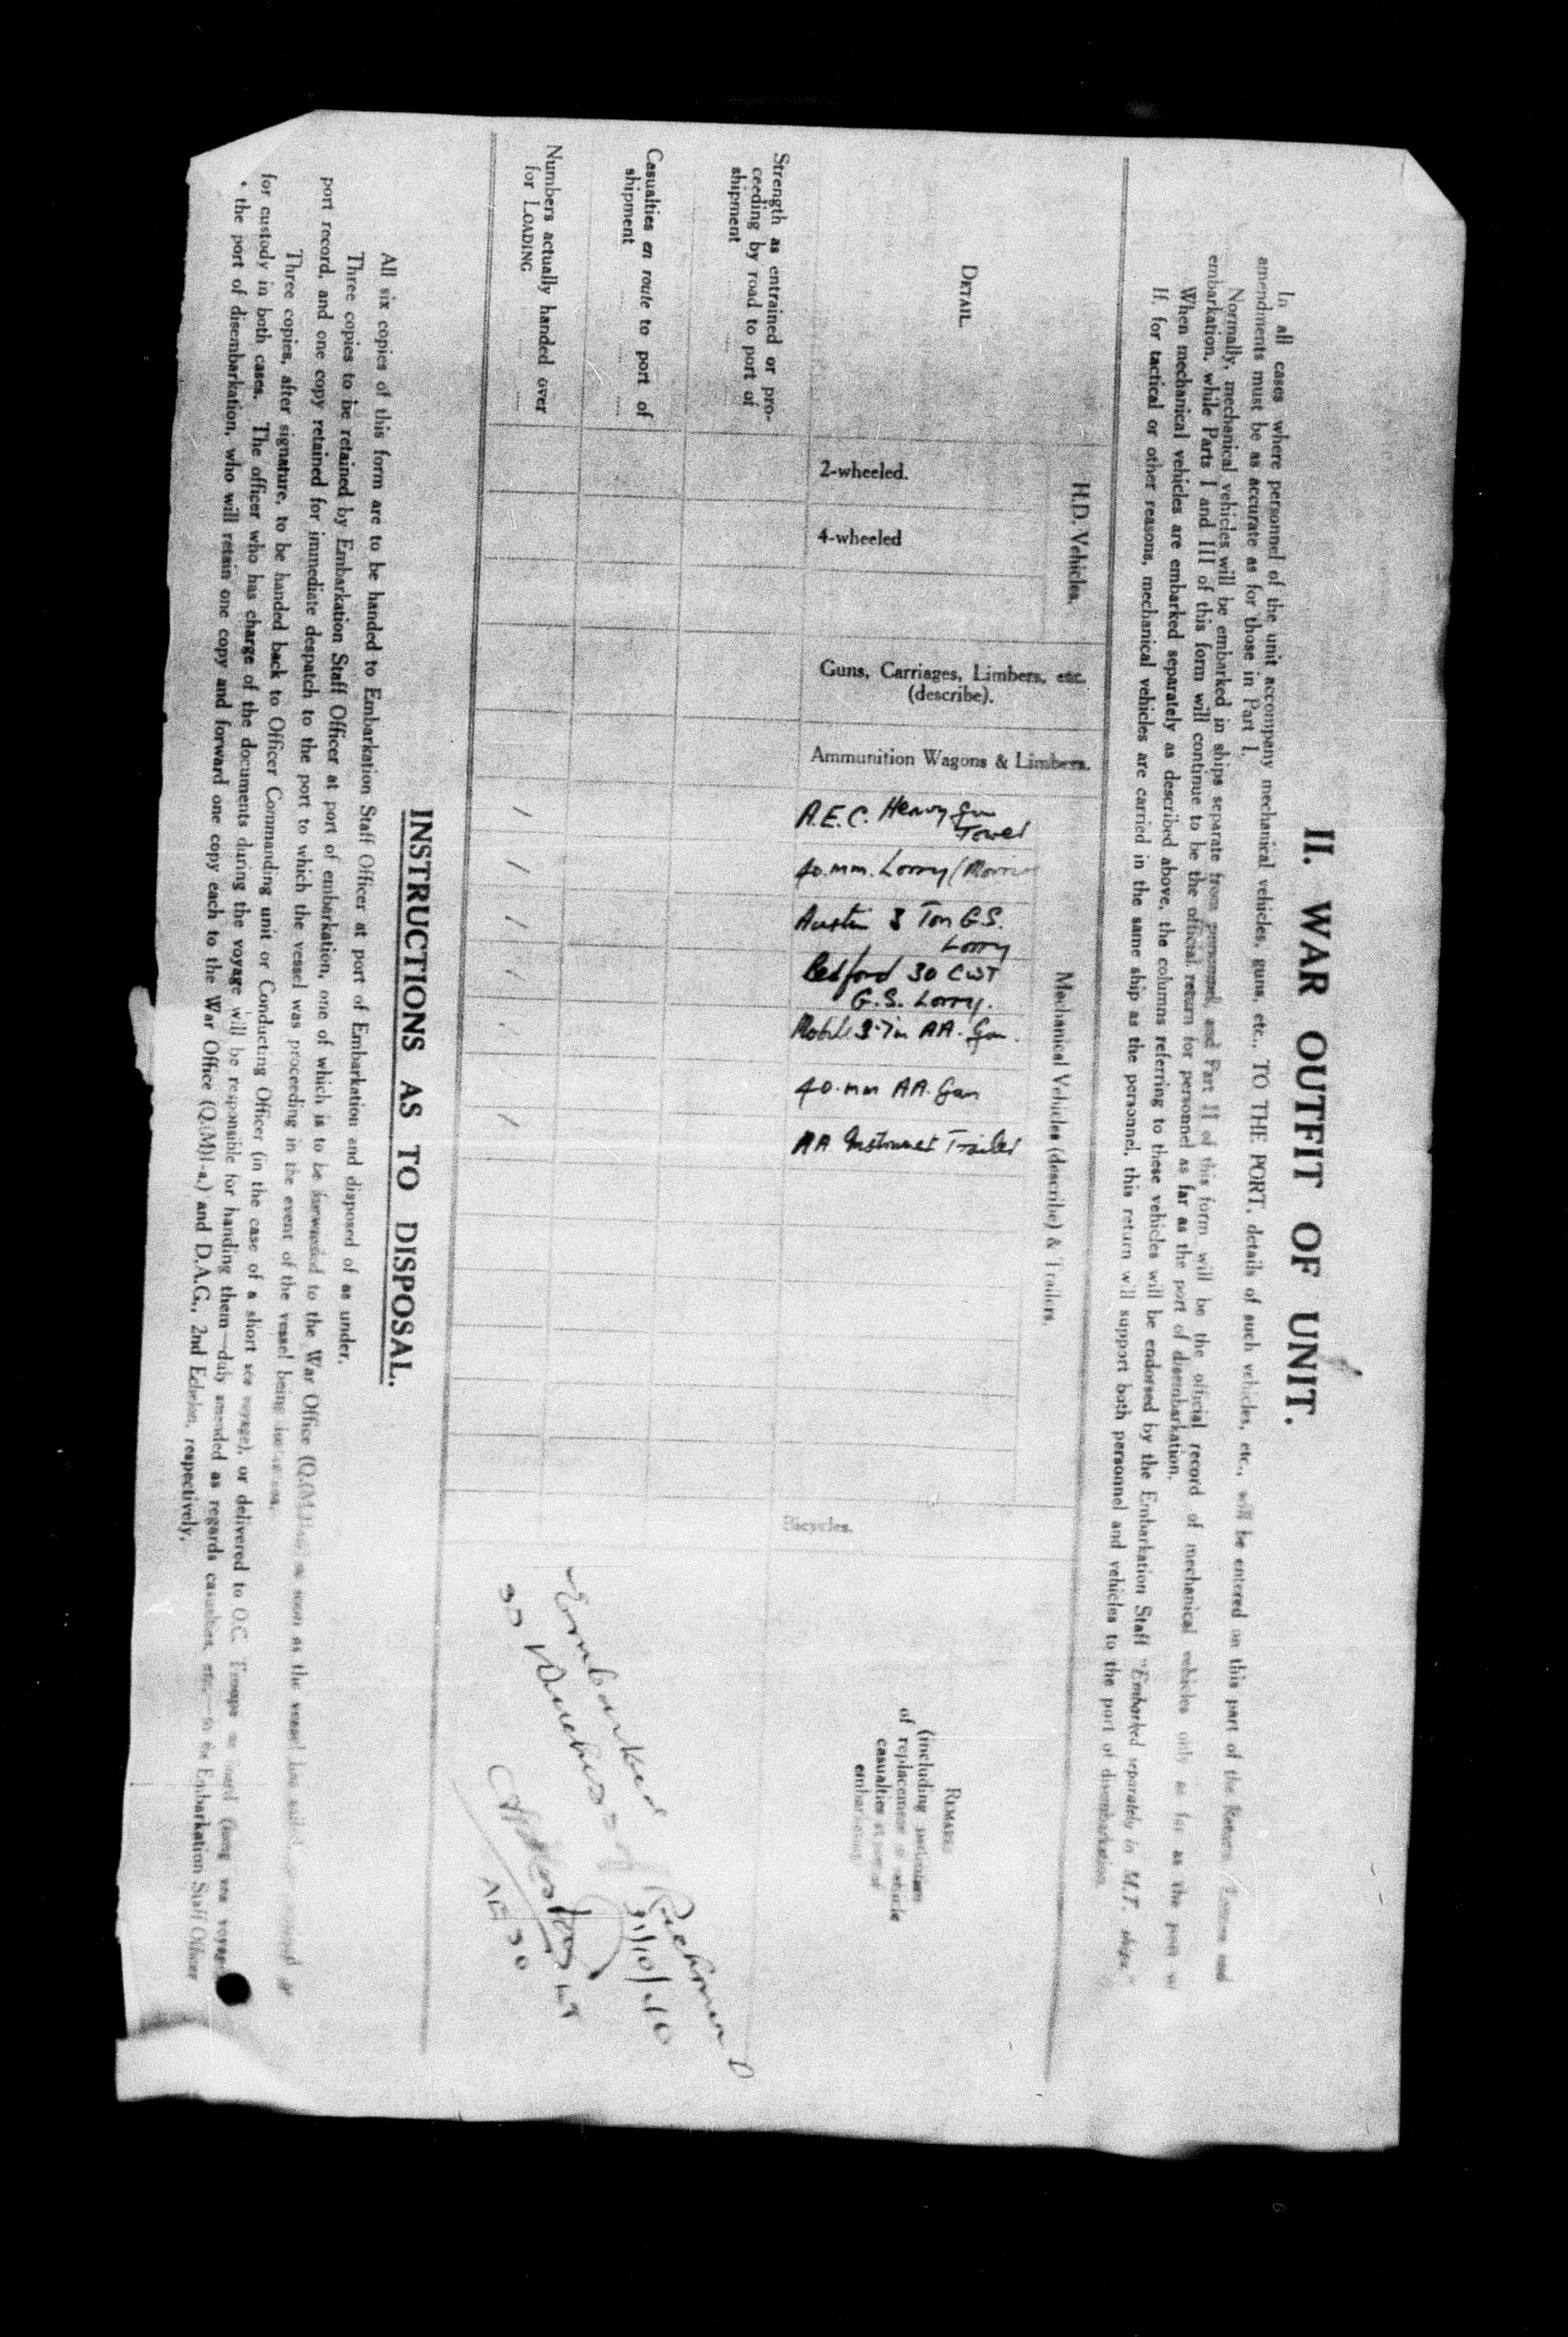 II. WAR OUTFIT OF UNIT.
In all cases where personnel of the unit accompany mechanical vehicles, guns, etc., TO THE PORT, details of such vehicles, etc., will be entered on this part of the and
amendments must be as accurate as for those in Part I.
Normally, mechanical vehicles will be embarked in ships separate from personnel, and Part II of this form will be the official record of mechanical vehicles only as far as the port of
embarkation, while Parts I and III of this form will continue to be the official return for personnel as far as the port of disembarkation.
When mechanical vehicles are embarked separately as described above, the columns referring to these vehicles will be endorsed by the Embarkation Staff "Embarked separately in M.T. ships."
If, for tactical or other reasons, mechanical vehicles are carried in the same ship as the personnel, this return will support both personnel and vehicles to the port of disembarkation.
DETAIL.
H.D. Vehicles.
2-wheeled.
4-wheeled
Guns, Carriages, Limbers, etc.
(describe).
Ammunition Wagons & Limbers.
Mechanical Vehicles (describe) & Trailers.
A.E.C. Heavy Gun
Tower
40.mm. Lorry (Morris
Austin 3 Ton G.S.
Lorry
Bedford 30 CWT
G.S. Lorry.
Mobile 3.7in AA. Gun.
40.mm AA. Gun
AA Instrument Trailer
Bicycles.
REMARKS
(including particulars
of replacement of vehicle
casualties at port of
embarkation)
Strength as entrained or pro-
ceeding by road to port of
shipment
Casualties en route to port of
shipment
Numbers actually handed over
for LOADING
/ / / / / /
Embarked
Duchess of Richmond
31/10/40
Lt
INSTRUCTIONS AS TO DISPOSAL.
All six copies of this form are to be handed to Embarkation Staff Officer at port of Embarkation and disposed of as under.
Three copies to be retained by Embarkation Staff Officer at port of embarkation, one of which is to be forwarded to the War Office as soon as the vessel has sailed, or
port record, and one copy retained for immediate despatch to the port to which the vessel was proceeding in the event of the vessel being lost at sea.
Three copies, after signature, to be handed back to Officer Commanding unit or Conducting Officer (in the case of a short sea voyage), or delivered to O.C. Troops on board (long sea voyage)
for custody in both cases. The officer who has charge of the documents during the voyage will be responsible for handing them—duly amended as regards casualties, etc.—to the Embarkation Staff Officer
• the port of disembarkation, who will retain one copy and forward one copy each to the War Office (Q.(M)1-a.) and D.A.G., 2nd Echelon, respectively.